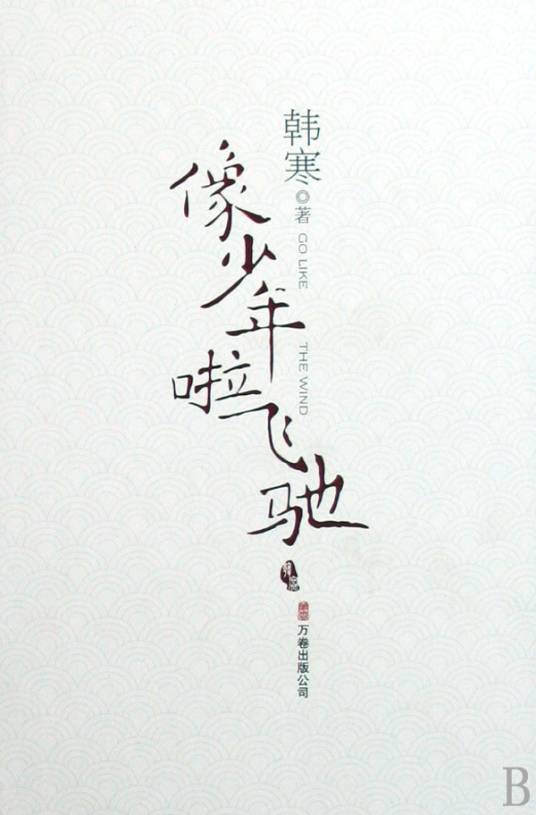 韩寒◎著
GO LIKE THE WIND
像少年啦飞驰
万卷出版公司
B